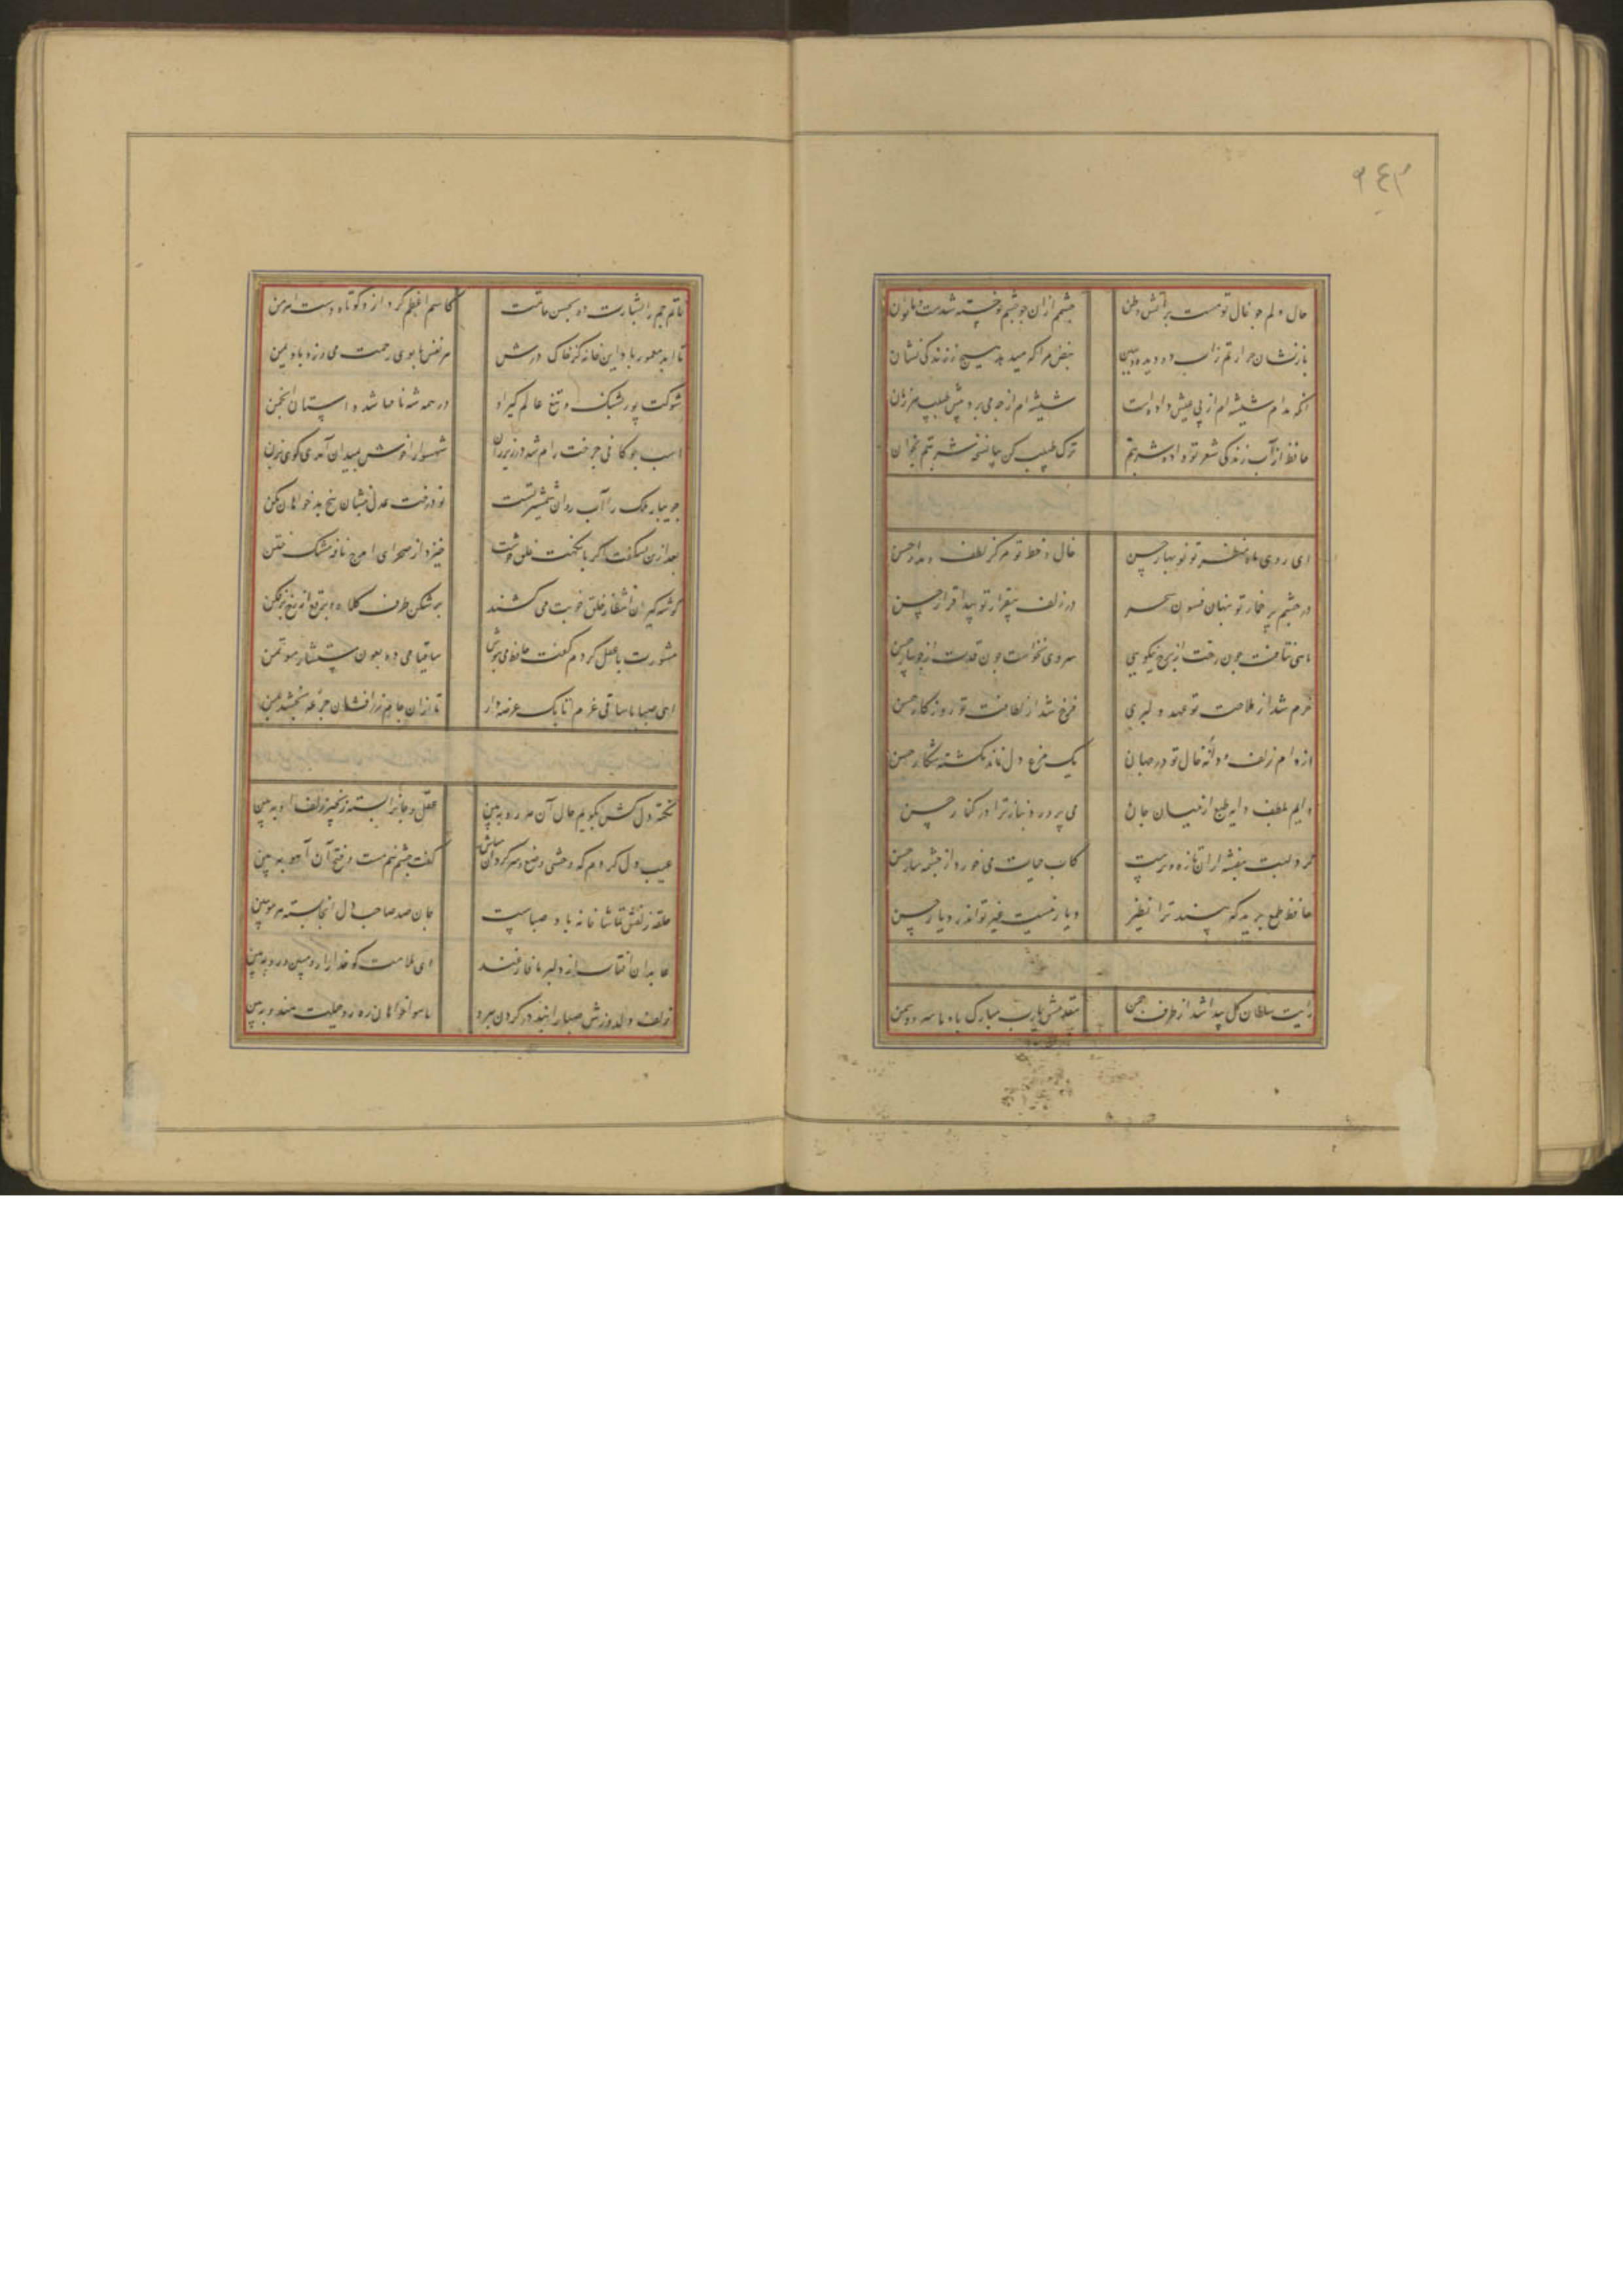 ۹٤۳
حال دلم چو خال تو هست بر آتش وطن
چشم از آن چو چشم تو خسته شدست و ناتوان
بازنشان حرارتم زآب دو دیده و ببین
نبض مرا که میدهد هیچ ززندگی نشان
آنکه مدام شیشه ام از پی عیش داده است
شیشه ام از چه می برد پیش طبیب هر زمان
حافظ از آب زندگی شعر تو داد شربتم
ترک طبیب کن بیا نسخه شربتم بخوان
ای روی ماه منظر تو نوبهار حسن
خال و خط تو مرکز لطف و مدار حسن
در چشم پر خمار تو پنهان فسون سحر
در زلف بیقرار تو پیدا قرار حسن
ماهی نتافت چون رخت از برج نیکویی
سروی نخواست چون قدت از جویبار حسن
خرم شد از ملاحت تو عهد دلبری
فرخ شد از لطافت تو روزگار حسن
از دام زلف و دانه خال تو در جهان
یک مرغ دل نماند نگشته شکار حسن
دایم بلطف دایه طبع از میان جان
می پرورد بناز ترا در کنار حسن
گرد لبت بنفشه از آن تازه و ترست
کاب حیات می خورد از چشمه سار حسن
حافظ طمع برید که بیند ترا نظیر
دیار نیست غیر تو اندر دیار حسن
رایت سلطان گل پیدا شد از طرف چمن
مقدمش یارب مبارک باد با سرو و سمن
خاتم جم را بشارت ده بحسن خاتمت
کاسم اعظم کرد ازو کوتاه دست اهرمن
تا ابد معمور باد این خانه کز خاک درش
هر نفس با بوی رحمت می وزد باد یمن
شوکت پور پشنگ و تیغ عالم گیر او
در همه شه نامها شد داستان انجمن
اسب چوگانی چرخت رام شد در زیر زین
شهسوارا خوش بمیدان آمدی گوی بزن
جویبار ملک را آب روان شمشیر تست
تو درخت عدل بنشان بیخ بد خواهان بکن
بعد ازین نشگفت اگر با نکهت خلق خوشت
خیزد از صحرای ایرج نافه مشک ختن
گوشه گیران انتظار خلق خوبت می کشند
برشکن طرف کلاه و برقع از رخ بر فکن
مشورت با عقل کردم گفت حافظ می بنوش
ساقیا می ده بقول مستشار مؤتمن
ای صبا با ساقی بزم اتابک عرضه دار
تا از آن جام زر افشان جرعه بخشد بمن
نکته دلکش بگویم خال آن مه رو ببین
عقل و جانرا بسته زنجیر زلف او ببین
عیب دل کردم که وحشی وضع و سرگردان مباش
گفت چشم نیم مست و غنج آن آهو ببین
حلقه زلفش تماشا خانه باد صباست
جان صد صاحب دل آنجا بسته هر مو ببین
عابدان آفتاب از دلبر ما غافلند
ای ملامت گو خدا را رو مبین و رو ببین
زلف دلدزدش صبا را بند در گردن نهد